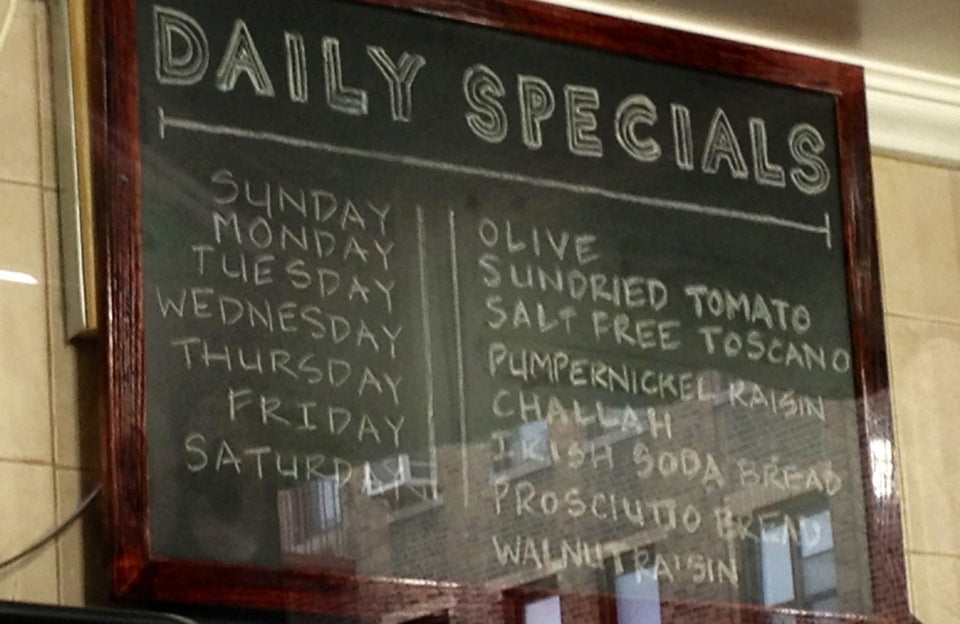 DAILY SPECIALS
SUNDAY
MONDAY
TUESDAY
WEDNESDAY
THURSDAY
FRIDAY
SATURDAY
OLIVE
SUNDRIED TOMATO
SALT FREE TOSCANO
PUMPERNICKEL RAISIN
CHALLAH
IRISH SODA BREAD
PROSCIUTTO BREAD
WALNUT RAISIN